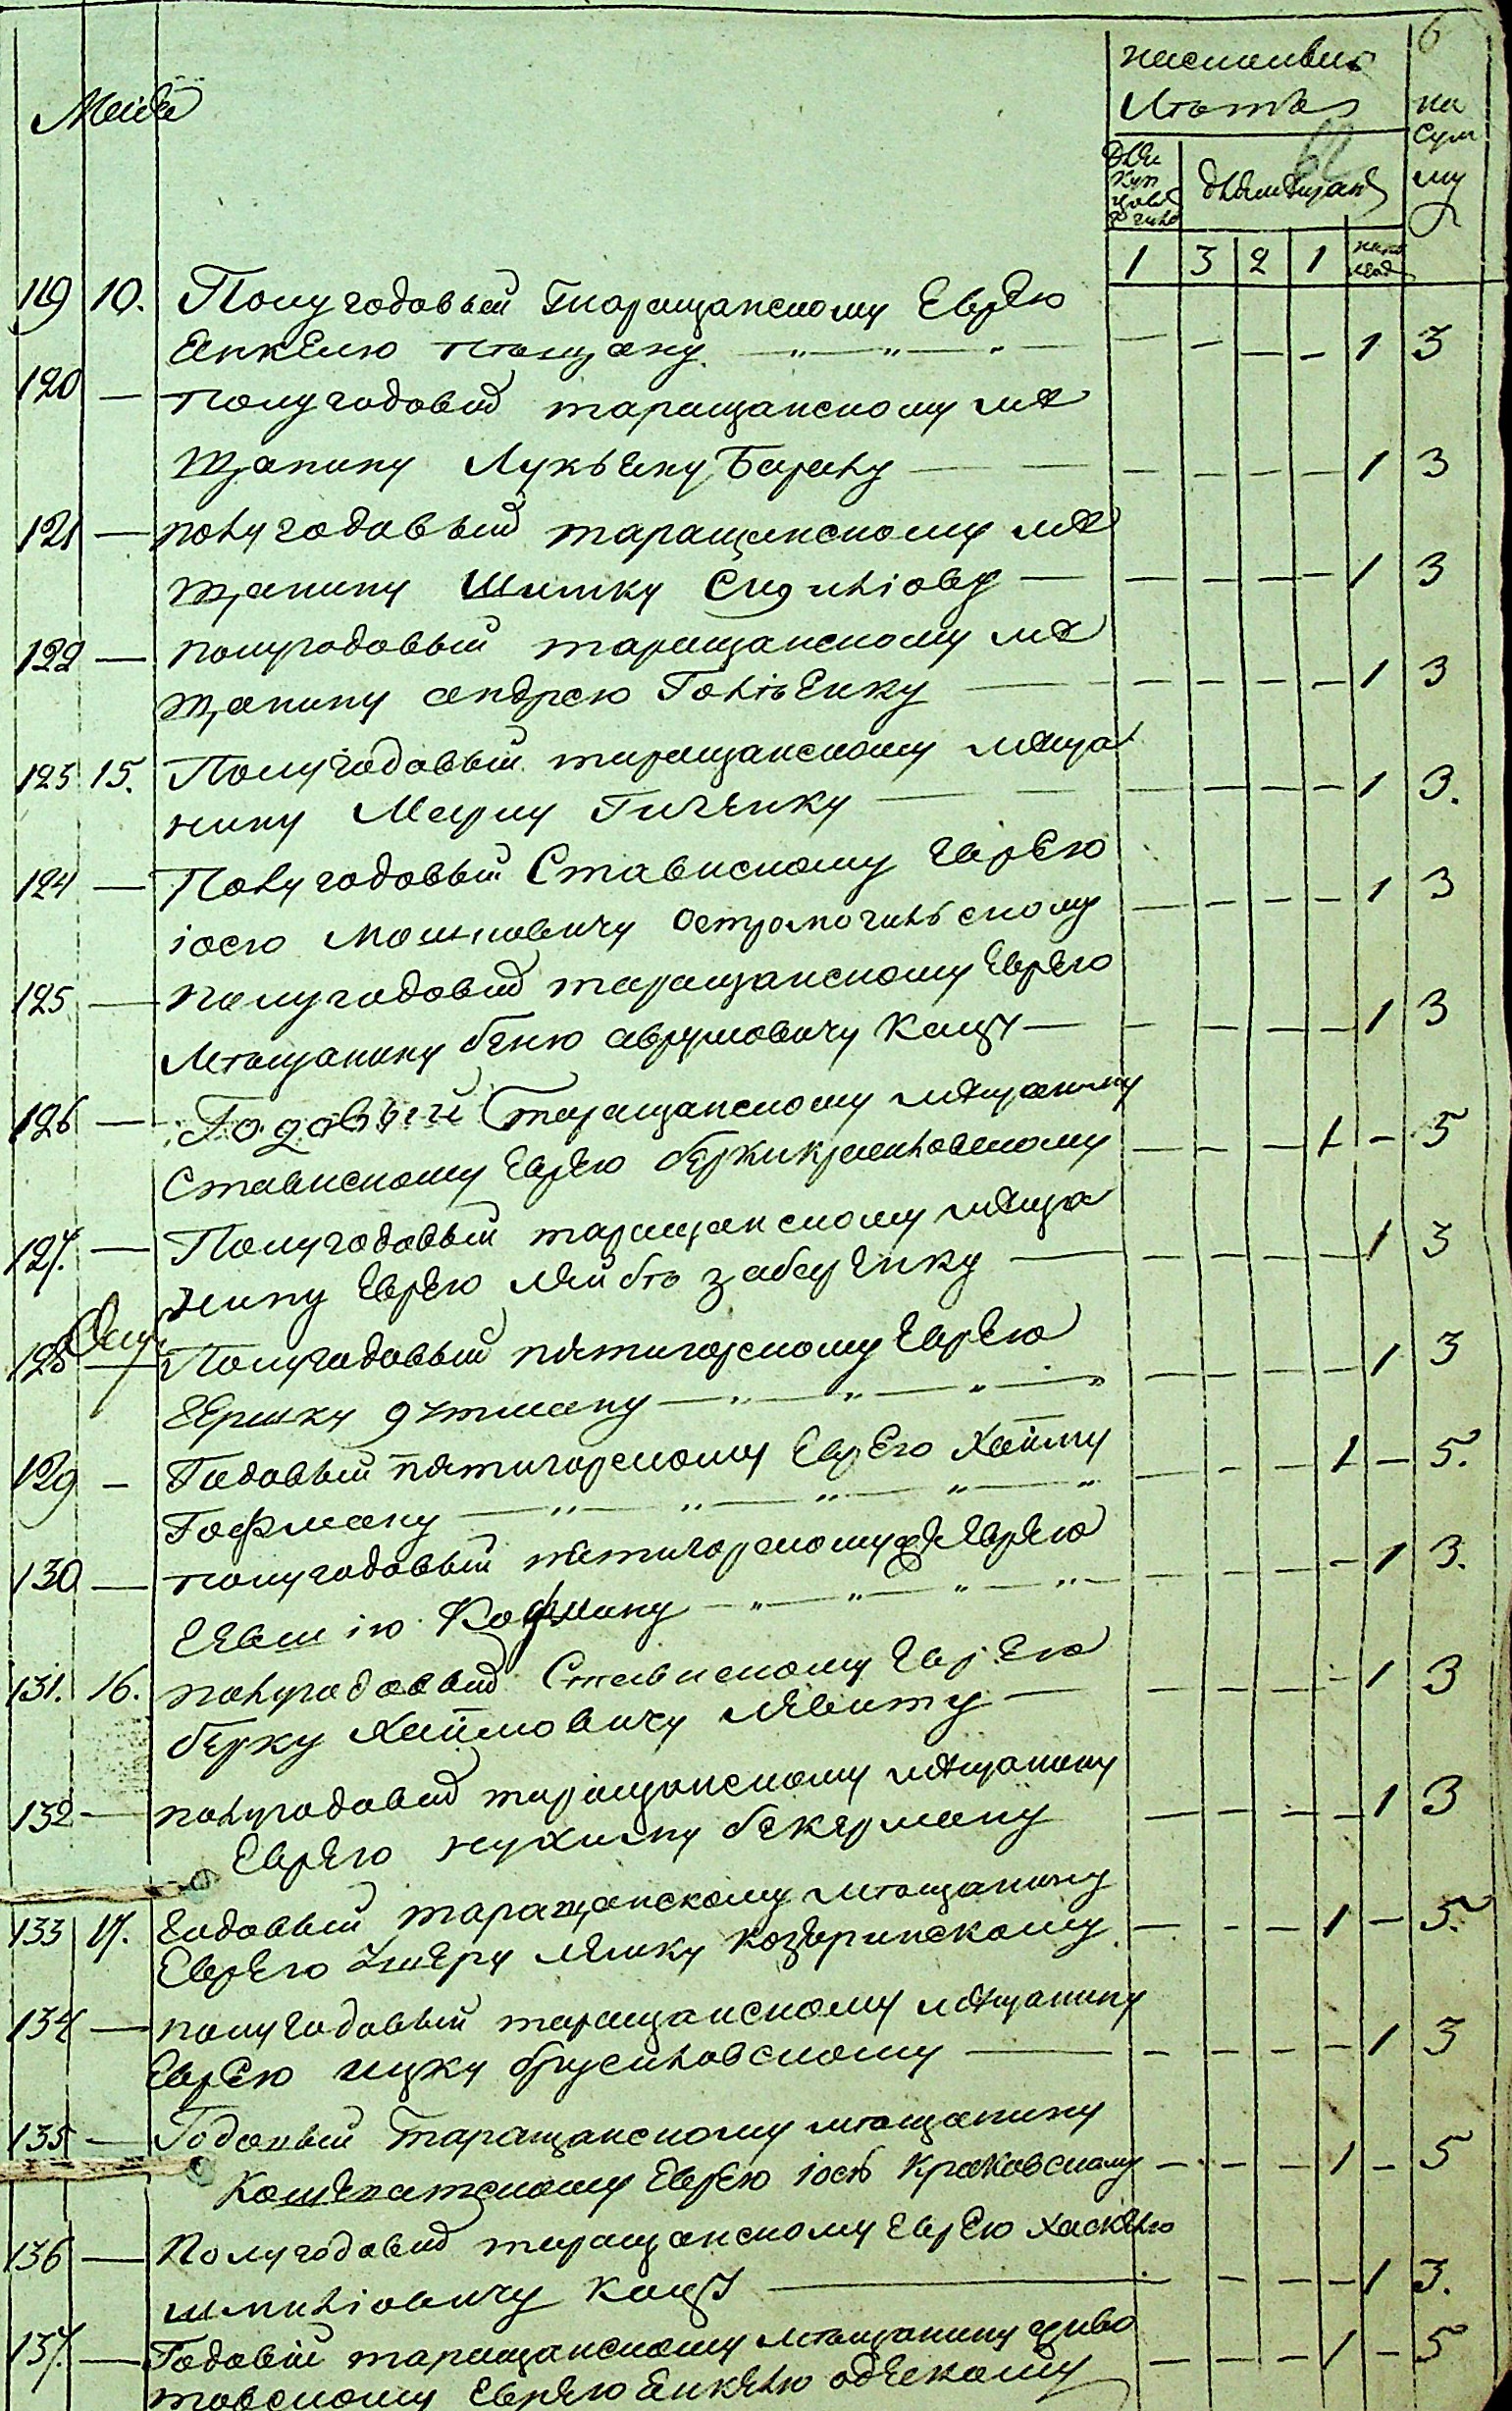 6
Маія
на
сум
му
62
Для
куп
цов
для мещан
1 3 2 1
119 10. Полугодовый Таращанскому Еврею
Янкелю 1 3
120 — полугодовый таращанскому мѣ
щанину Лукьяну Барану — 1 3
121 — полугодовый таращанскому мѣ
щанину Шимку — 1 3
122 — полугодовый таращанскому мѣ
щанину андрею — 1 3
123 15. Полугодовый таращанскому мѣща
нину — 1 3.
124 — Полугодовый Ставискому Еврею
іосю Мошковичу Остромогильскому 1 3
125 — полугодовый таращанскому Еврею
Мѣщанину беню аврумовичу Кацу — 1 3
126 — Годовый Таращанскому мѣщанину
Ставискому Еврею 1 — 5
127. — Полугодовый таращанскому мѣща
нину Еврею лейбѣ — 1 3
128 — Полугодовый пятигорскому Еврею
Гершку 1 3
129 — Годовый пятигорскому Еврею Хаиму
Гофману 1 — 5.
130 — полугодовый пятигорскому Еврею
Гофману 1 3.
131. 16. полугодовый Ставискому Еврею
берку Хаимовичу левиту — 1 3
132 — полугодовый таращанскому мѣщанину
Еврею нухиму бекерману 1 3
133 17. Годовый таращанскому мѣщанину
Еврею Ушеру 1 — 5.
134 — полугодовый таращанскому мѣщанину
Еврею ицку брусиловскому — 1 3
135 — Годовый Таращанскому мѣщанину
Кошеватскому Еврею іосѣ Краковскому 1 — 5
136 — Полугодовый таращанскому Еврею хаскелю
шмиліовичу Кацу — 1 3.
137. — Годовій таращанскому мѣщанину живо
товскому Еврею Янкелю одескому 1 — 5